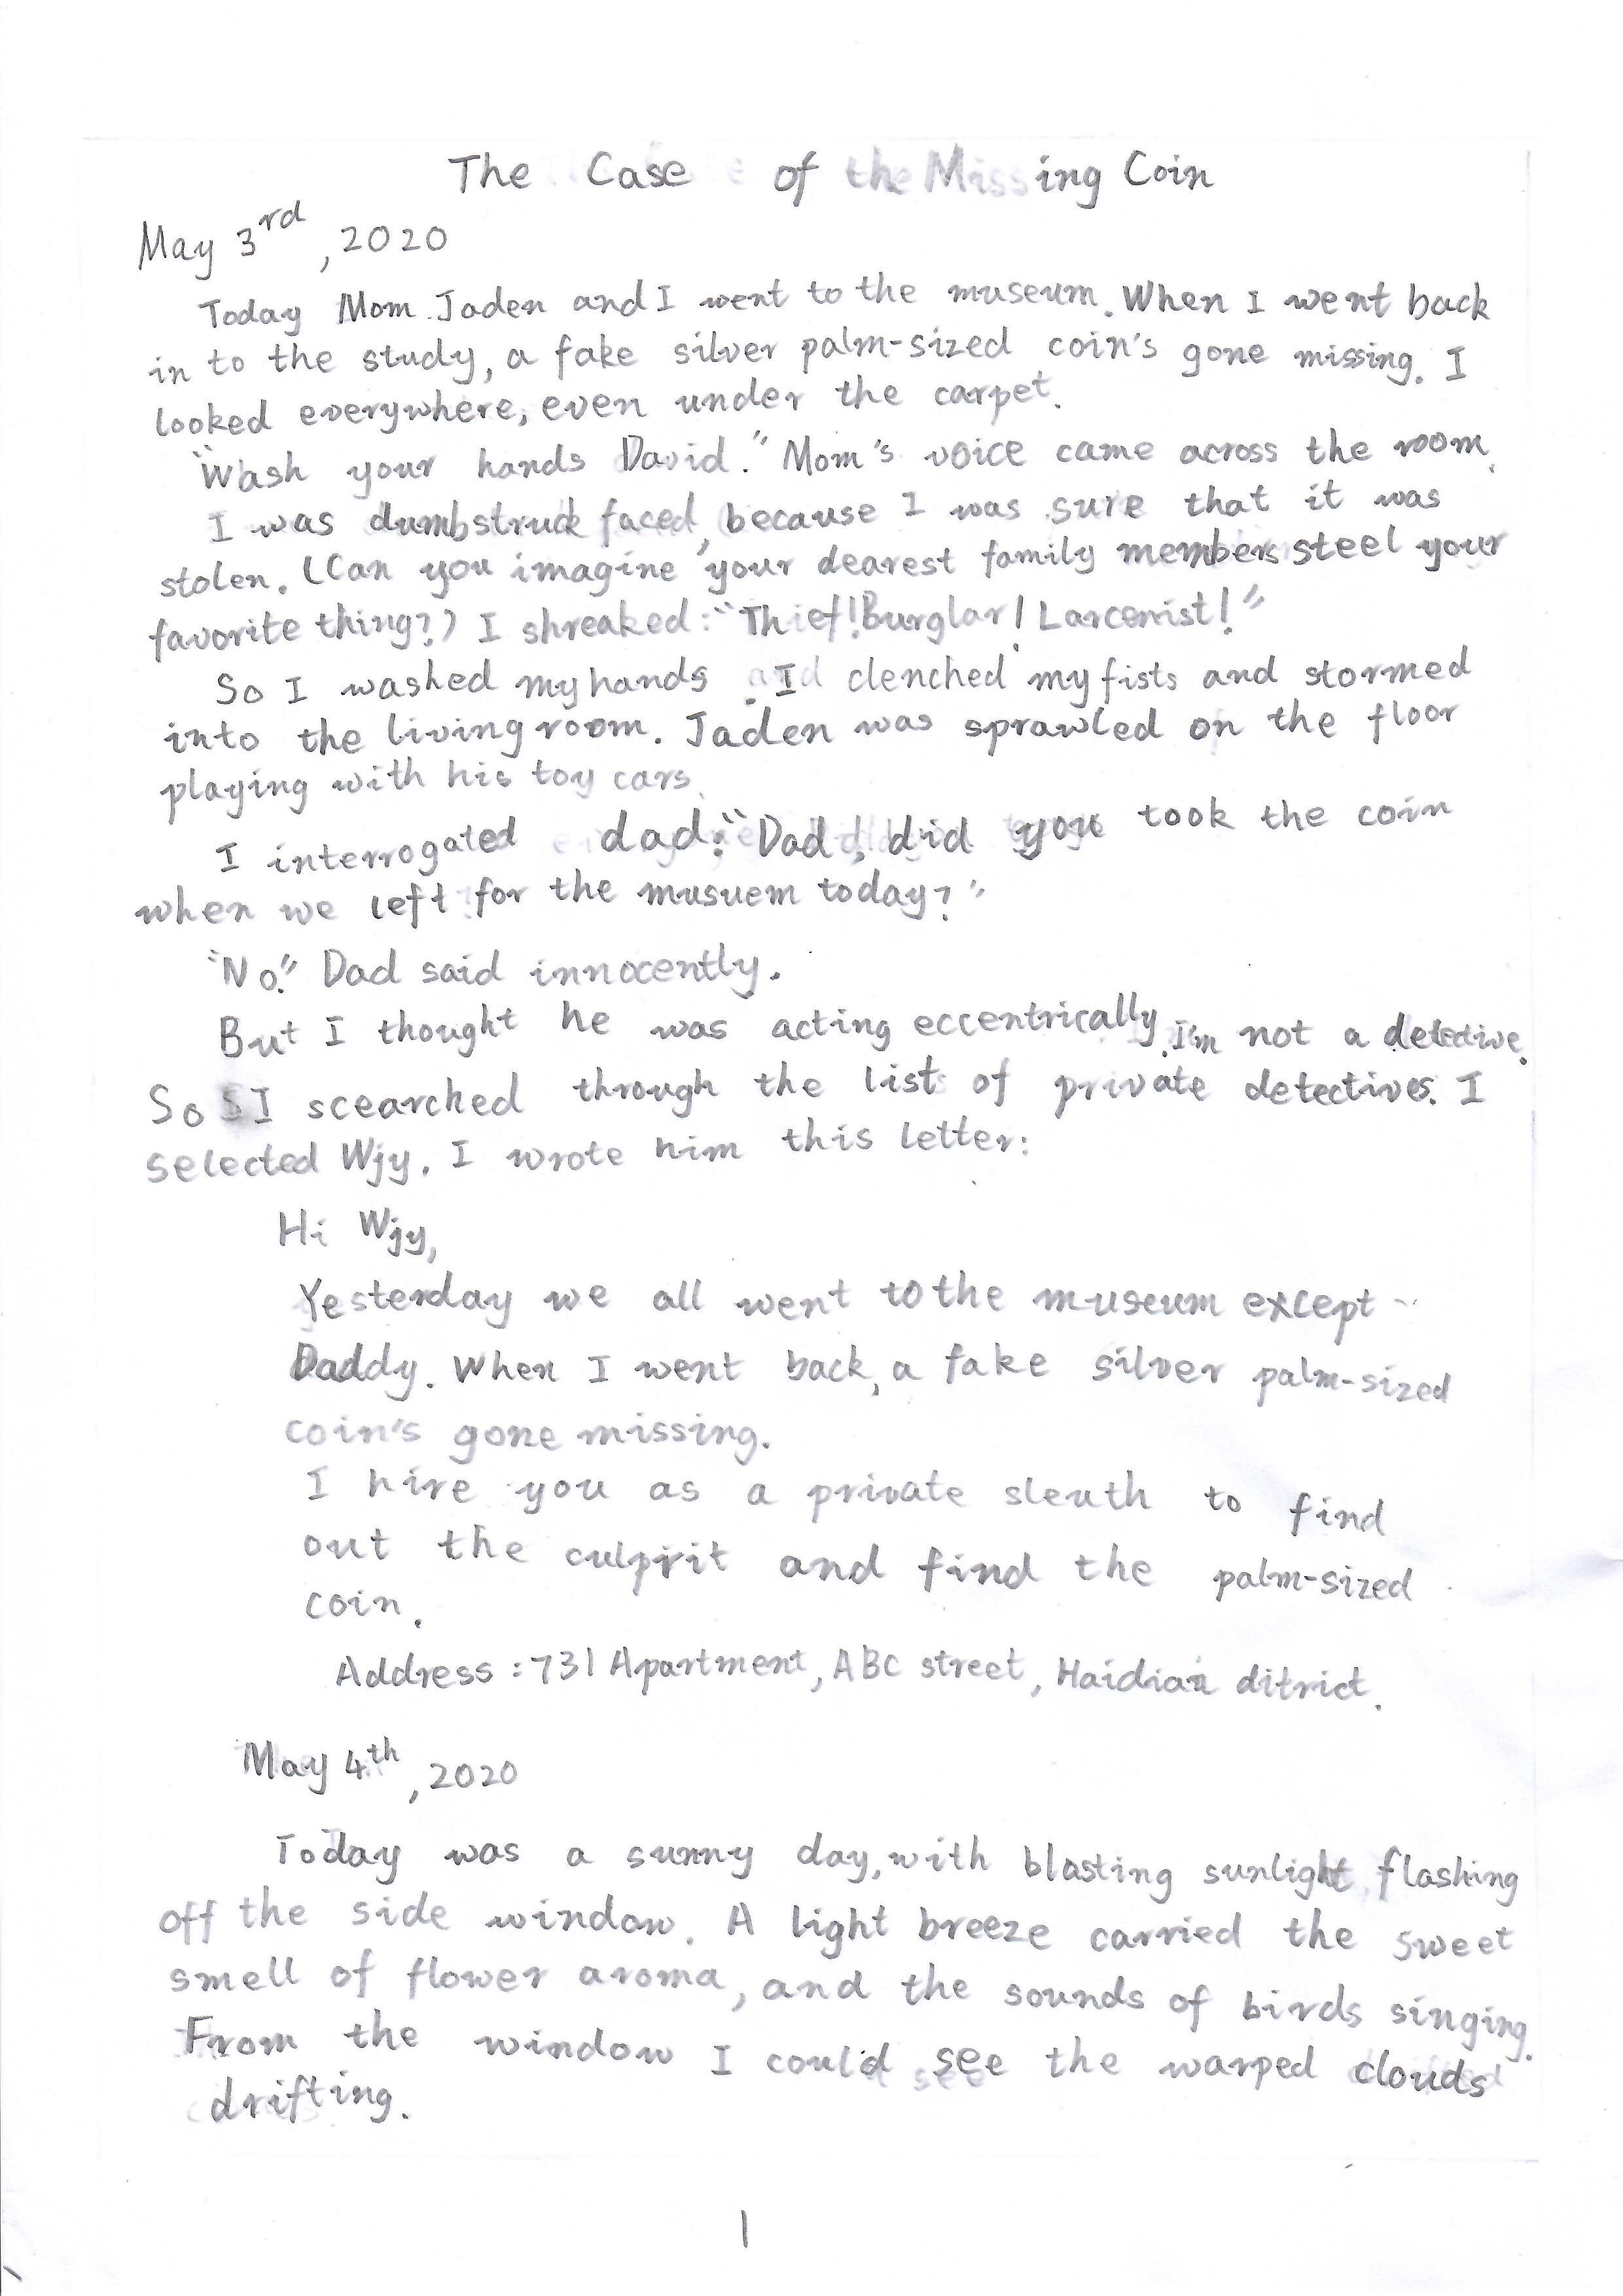 The Case of the Missing Coin
May 3rd, 2020
Today Mom Jaden and I went to the museum. When I went back
in to the study, a fake silver palm-sized coin's gone missing. I
looked everywhere, even under the carpet.
"Wash your hands David." Mom's voice came across the room.
I was dumbstruck faced, because I was sure that it was
stolen. (Can you imagine your dearest family members steel your
favorite thing?) I shreaked: "Thief! Burglar! Larcenist!"
So I washed my hands. I clenched my fists and stormed
into the living room. Jaden was sprawled on the floor
playing with his toy cars.
I interrogated dad: "Dad, did you took the coin
when we left for the musuem today?"
"No." Dad said innocently.
But I thought he was acting eccentrically. I'm not a detective.
So I scearched through the list of private detectives. I
selected Wjy. I wrote him this letter:
Hi Wjy,
Yesterday we all went to the museum except
Daddy. When I went back, a fake silver palm-sized
coin's gone missing.
I hire you as a private sleuth to find
out the culprit and find the palm-sized
coin.
Address: 731 Apartment, ABC street, Haidian ditrict.
May 4th, 2020
Today was a sunny day, with blasting sunlight flashing
off the side window. A light breeze carried the sweet
smell of flower aroma, and the sounds of birds singing.
From the window I could see the warped clouds
drifting.
1